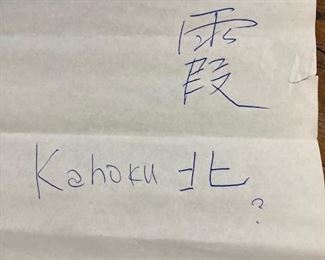 霞
Kahoku 北
?